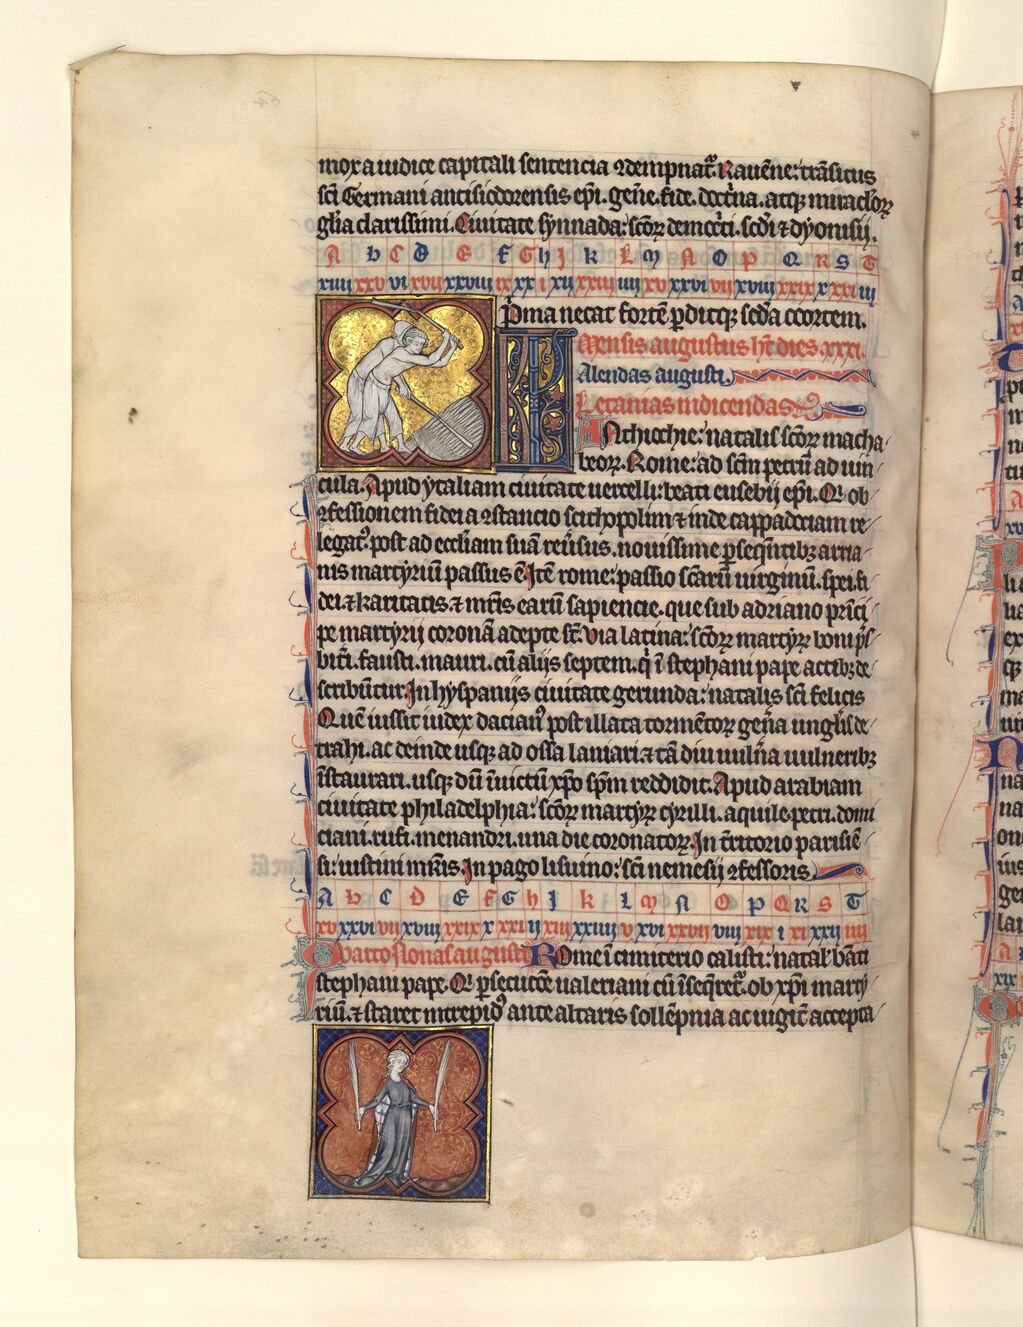 mox a iudice capitali sentencia ꝯdempnat᷑. Rauēne: trāsitus
sc̄i Germani antisiodorensis ep̄i. gen̄e. fide. doctͥna. atqꝫ miraclͦoꝝ
gl̄ia clarissimi. Ciuitate synnada: sc̄oꝝ democͥti. sc̄di ⁊ dyonisij.
A b C D E F G h J k L M N O P Q R S T
xiiii xxv vi xvii xxviii ix xx i xii xxiii iiii xv xxvi vii xviii xxix x xxi iii
Pͥma necat fortē ꝑditqꝫ scd̄a cohortem.
Mensis augustus h̄t dies .xxxi.
Kalendas augusti.
Letanias indicendas
Antiochie: natalis sc̄oꝝ macha
beoꝝ. Rome: ad sc̄m petrū ad uin
cula. Apud ytaliam ciuitate uercelli: beati eusebij ep̄i. Qͥ ob
ꝯfessionem fidei a ꝯstancio scithopolim ⁊ inde cappadociam re
legat᷒. post ad eccl̄iam suā reuersus. nouissime ꝑseqn̄tibꝫ arria
nis martyriū passus ē. Itē rome: passio sc̄arū uirginū. spei. fi
dei. ⁊ karitatis. ⁊ mr̄is earū sapiencie. que sub adriano prīci
pe martyrij coronā adepte sr̄. Via latina: sc̄oꝝ martyꝝ boni p̄s
bit̄i. fausti. mauri. cū alijs septem. qͥ ī stephani pape actibꝫ de
scribūtur. In hyspanijs ciuitate gerunda: natalis sc̄i felicis
Quē iussit iudex dacian᷒ post illata tormentoꝝ gen̄a unglis de
trahi. ac deinde usqꝫ ad ossa laniari. ⁊ tā diu uuln̄a uulneribꝫ
īstaurari. usqꝫ dū īuictū xp̄o sp̄m reddidit. Apud arabiam
ciuitate philadelphia: sc̄oꝝ martyꝝ cyrilli. aquile. petri. domi
ciani. rufi. menandri. una die coronatoꝝ. In t̄ritorio parisiē
si: iustini mr̄is. In pago lisuino: sc̄i nemesij ꝯfessoris.
A b C D E F G h J k L M N O P Q R S T
xv xxvi vii xviii xxix x xxi ii xiii xxiiii v xvi xxvii viii xix i xi xxii iiii
Quarto Nonas augusti. Rome ī cimiterio calisti: natal̄ bāti
stephani pape. Qͥ ꝑsecucōe ualeriani cū īseqͥret᷑. ob xp̄i marty
riū. ⁊ staret intrepid᷒ ante altaris sollēpnia ac uigit̄ accepta